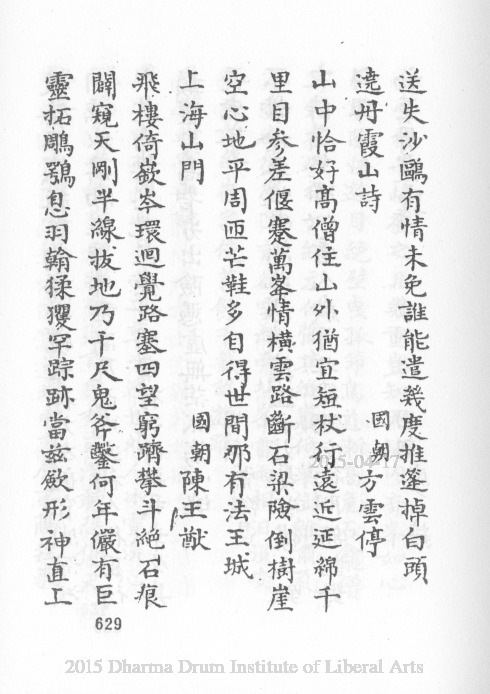 送失沙鷗有情未免誰能遣幾度推篷掉白頭
遶丹霞山詩　國朝方雲停
山中恰好高僧住山外猶宜短杖行遠近延綿千
里目參差偃蹇萬峯情橫雲路斷石梁險倒樹崖
空心地平周匝芒鞋多自得世間那有法王城
上海山門　國朝陳王猷
飛樓倚嶔岑環迴覺路塞四望窮躋攀斗絕石痕
闢窺天剛半線拔地乃千尺鬼斧鑿何年儼有巨
靈拓鵰鶚息羽翰猱玃罕踪跡當茲歛形神直上
629
2015-04-17
2015 Dharma Drum Institute of Liberal Arts